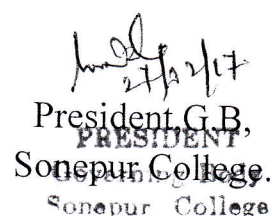 27/02/17
President, G.B,
PRESIDENT
Sonepur College.
Governing Body
Sonepur College